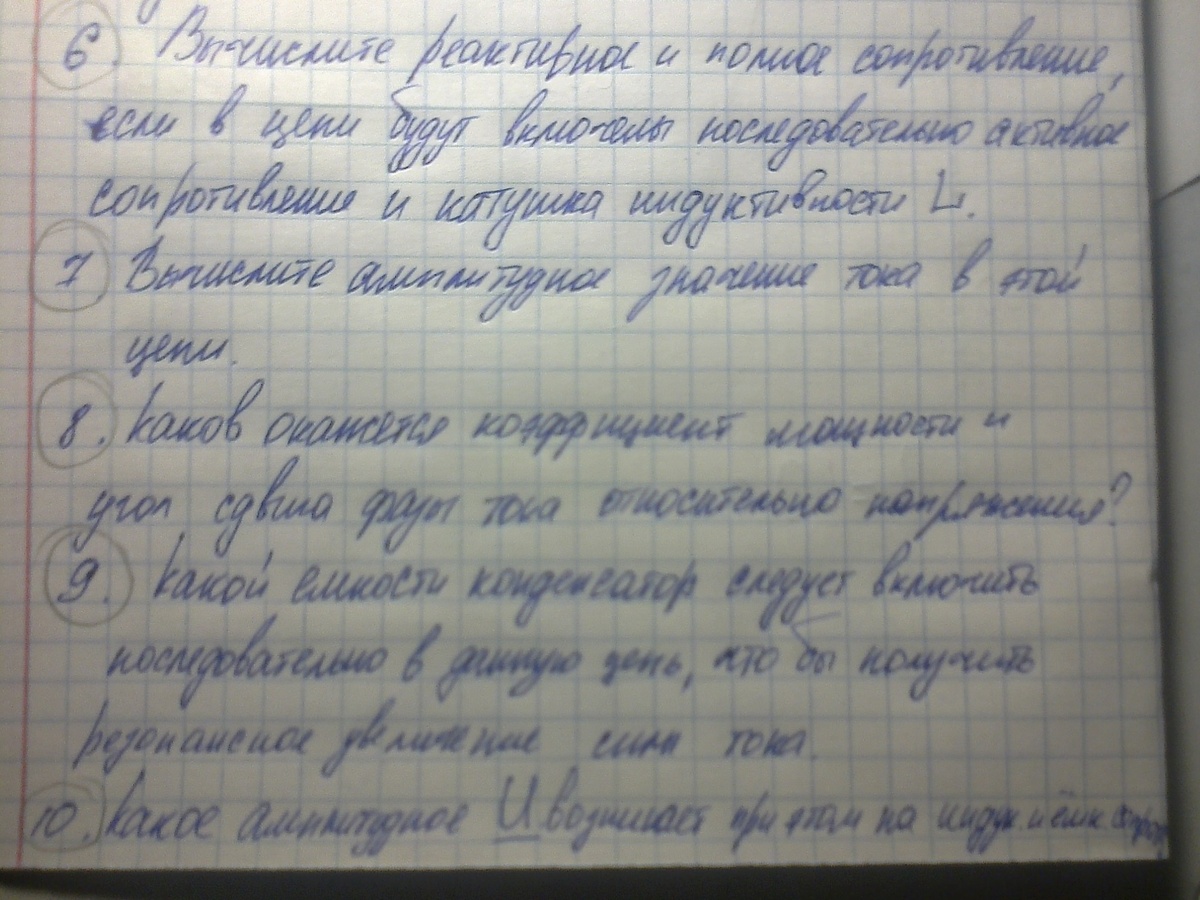 6. Вычислите реактивное и полное сопротивление,
если в цепи будут включены последовательно активное
сопротивление и катушка индуктивности L.
7 Вычислите амплитудное значение тока в этой
цепи.
8. Каков окажется коэффициент мощности и
угол сдвига фазы тока относительно напряжения?
9. Какой емкости конденсатор следует включить
последовательно в данную цепь, что бы получить
резонансное увеличение силы тока.
10. Какое амплитудное U возникает при этом на индук. и ёмк. сопрот